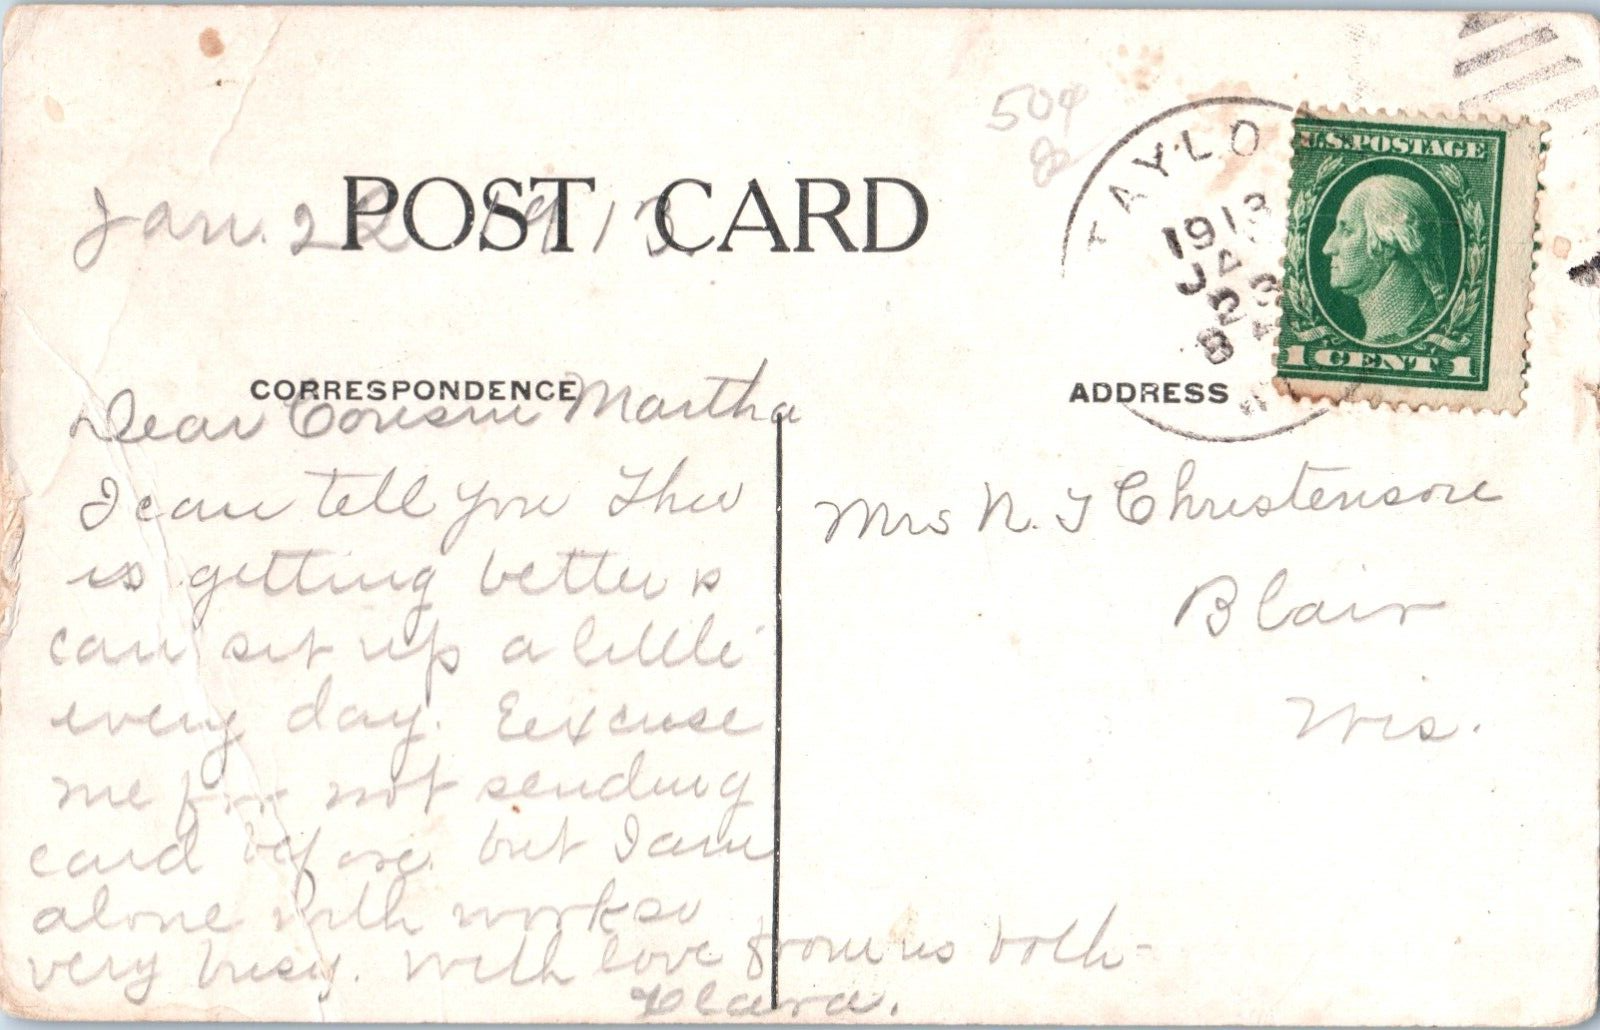 50¢
TAYLO
1913
JAN
23
8 A
U.S. POSTAGE
1 CENT 1
POST CARD
Jan. 22 1913
CORRESPONDENCE
ADDRESS
Dear Cousin Martha
I can tell you Theo
is getting better &
can set up a little
every day. Eexcuse
me for not sending
card before. but I am
alone with work so
very busy. With love from us both-
Clara.
Mrs N. T Christensone
Blair
Wis.